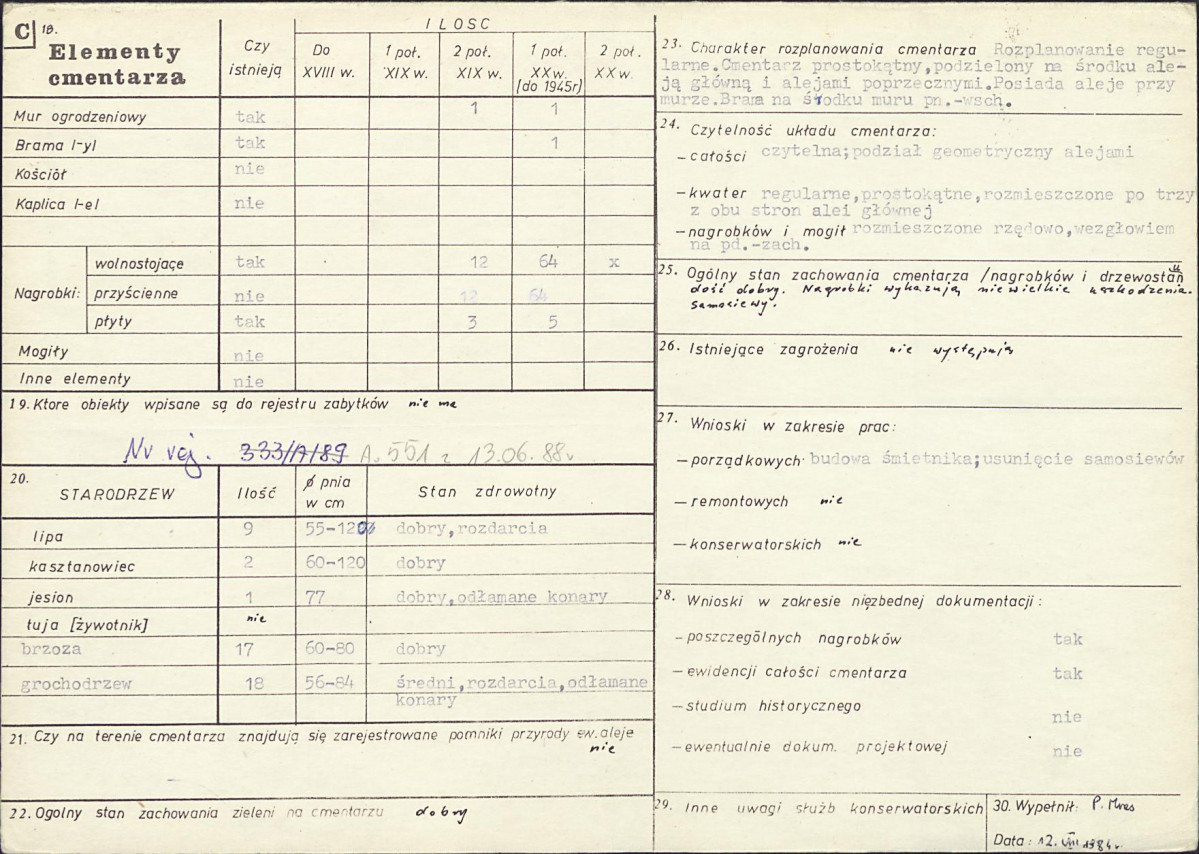 C 18.
Elementy
cmentarza
Czy
istnieją
ILOSC
Do
XVIII w.
1 poł.
XIX w.
2 poł.
XIX w.
1 poł.
XX w.
(do 1945r)
2 poł.
XX w.
Mur ogrodzeniowy tak 1 1
Brama /-y/ tak 1
Kościół nie
Kaplica /-e/ nie
Nagrobki:
wolnostojące tak 12 64 x
przyścienne nie 12 64
płyty tak 3 5
Mogiły nie
Inne elementy nie
19. Ktore obiekty wpisane są do rejestru zabytków nie ma
Nr rej. 333/A/89 A. 551 z 13.06.88r
20.
STARODRZEW Ilość ϕ pnia
w cm Stan zdrowotny
lipa 9 55-120 dobry,rozdarcia
kasztanowiec 2 60-120 dobry
jesion 1 77 dobry,odłamane konary
tuja [żywotnik] nie
brzoza 17 60-80 dobry
grochodrzew 18 56-84 średni,rozdarcia,odłamane
konary
21. Czy na terenie cmentarza znajdują się zarejestrowane pomniki przyrody ew. aleje
nie
22. Ogolny stan zachowania zieleni na cmentarzu dobry
23. Charakter rozplanowania cmentarza Rozplanowanie regu-
larne.Cmentarz prostokątny,podzielony na środku ale-
ją główną i alejami poprzecznymi.Posiada aleje przy
murze.Brama na środku muru pn.-wsch.
24. Czytelność układu cmentarza:
- całości czytelna;podział geometryczny alejami
- kwater regularne,prostokątne,rozmieszczone po trzy
z obu stron alei głównej
- nagrobków i mogił rozmieszczone rzędowo,wezgłowiem
na pd.-zach.
25. Ogólny stan zachowania cmentarza /nagrobków i drzewostanu
dość dobry. Nagrobki wykazują niewielkie uszkodzenia.
samosiewy.
26. Istniejące zagrożenia nie występują
27. Wnioski w zakresie prac:
- porządkowych budowa śmietnika;usunięcie samosiewów
- remontowych nie
- konserwatorskich nie
28. Wnioski w zakresie nięzbednej dokumentacji:
- poszczególnych nagrobków tak
- ewidencji całości cmentarza tak
- studium historycznego nie
- ewentualnie dokum. projektowej nie
29. Inne uwagi służb konserwatorskich
30. Wypełnił: P.
Data: 12. VIII 1984r.